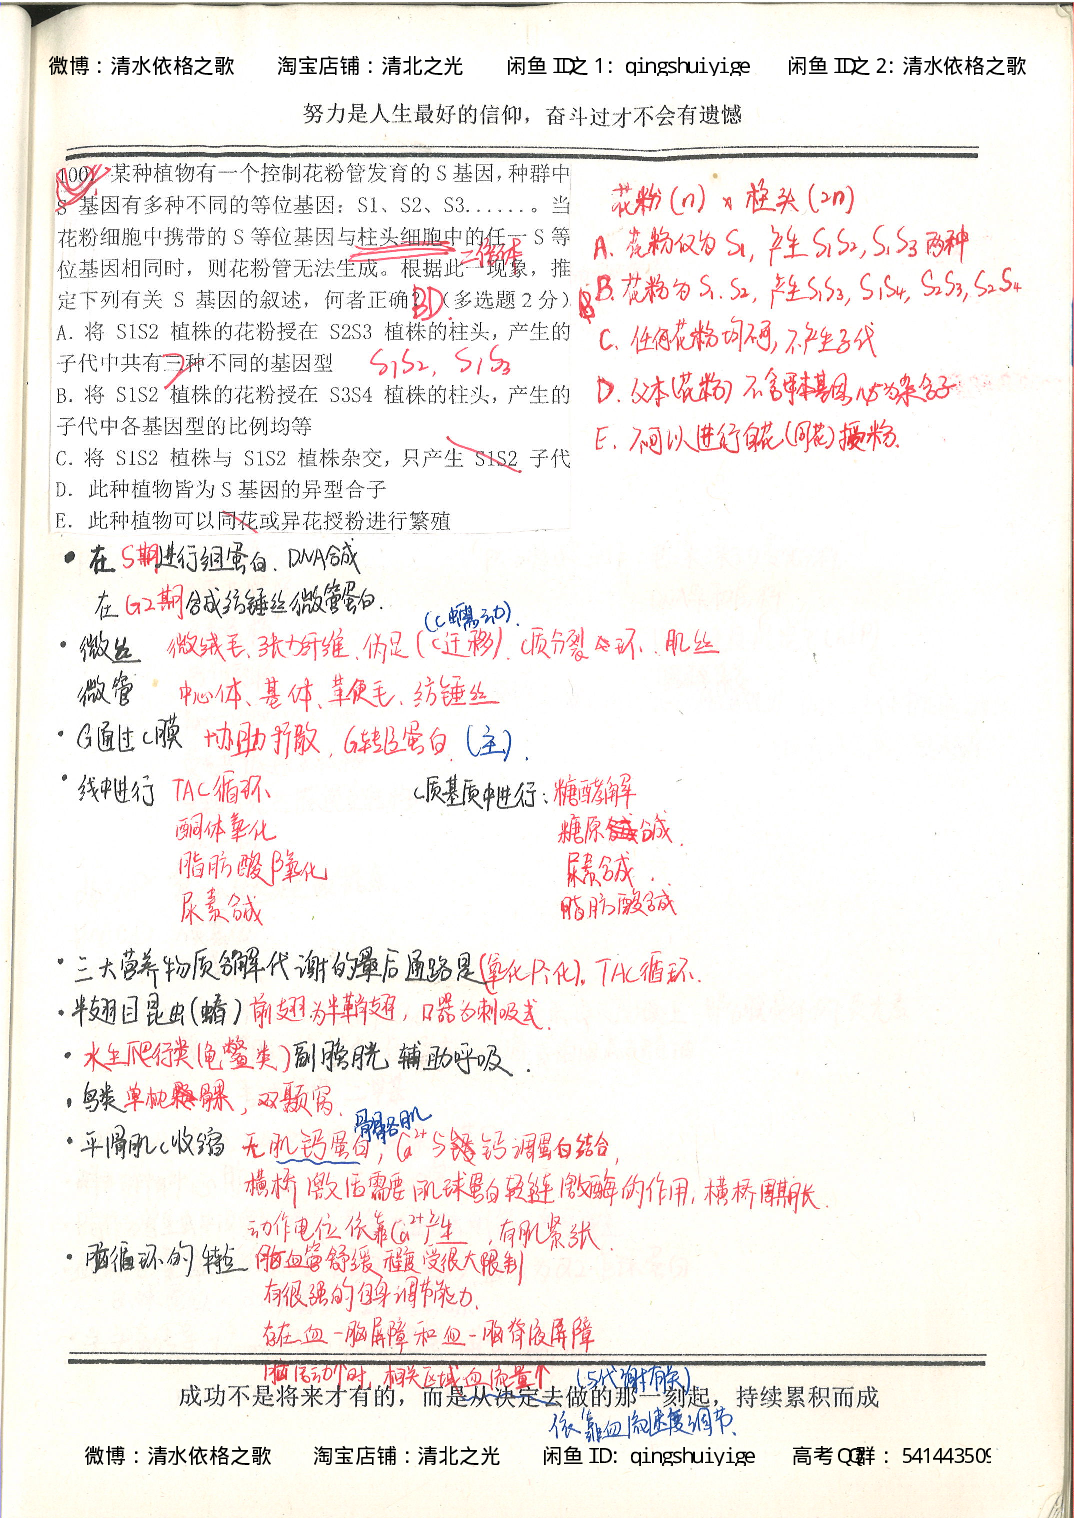 微博：清水依格之歌 淘宝店铺：清北之光 闲鱼 ID之 1：qingshuiyige 闲鱼 ID之 2：清水依格之歌
努力是人生最好的信仰，奋斗过才不会有遗憾
100. 某种植物有一个控制花粉管发育的 S 基因，种群中
S 基因有多种不同的等位基因：S1、S2、S3......。当
花粉细胞中携带的 S 等位基因与柱头细胞中的任一 S 等
二倍体
位基因相同时，则花粉管无法生成。根据此一现象，推
定下列有关 S 基因的叙述，何者正确？（多选题 2 分）
BD.
A. 将 S1S2 植株的花粉授在 S2S3 植株的柱头，产生的
子代中共有三种不同的基因型
S1S2, S1S3
B. 将 S1S2 植株的花粉授在 S3S4 植株的柱头，产生的
子代中各基因型的比例均等
C. 将 S1S2 植株与 S1S2 植株杂交，只产生 S1S2 子代
D. 此种植物皆为 S 基因的异型合子
E. 此种植物可以同花或异花授粉进行繁殖
花粉(n) x 柱头(2n)
A. 花粉仅为 S1, 产生 S1S2, S1S3 两种
B. 花粉为 S1. S2, 产生S1S3, S1S4, S2S3, S2S4
C. 任何花粉均不可, 不产生子代
D. 父本(花粉) 不含母本基因, 必为杂合子
E. 不可以进行自花(同花) 授粉.
• 在 S期进行组蛋白、DNA合成
在 G2期合成纺锤丝微管蛋白.
(C蠕动).
• 微丝 微绒毛、张力纤维、伪足 (C迁移)、C质分裂环、肌丝
微管 中心体、基体、鞭毛、纺锤丝
• G通过C膜 协助扩散, G转运蛋白 (主).
• 线中进行 TAC循环 C质基质中进行：糖酵解
酮体氧化 糖原合成.
脂肪酸β氧化 尿素合成.
尿素合成 脂肪酸合成
• 三大营养物质分解代谢的最后通路是(氧化磷酸化), TAC循环.
• 半翅目昆虫(蝽) 前翅为半鞘翅, 口器为刺吸式.
• 水生爬行类(龟鳖类)副膀胱 辅助呼吸.
• 鸟类 单枕髁, 双颞窝.
骨骼肌
• 平滑肌C收缩 无肌钙蛋白, Ca2+与钙调蛋白结合,
横桥激活需要肌球蛋白轻链激酶的作用, 横桥周期长.
动作电位依靠Ca2+产生, 有肌紧张.
• 脑循环的特点 脑血管舒缓程度受很大限制
有很强的自身调节能力.
存在血-脑屏障和血-脑脊液屏障
脑活动↑时, 相关区域血流量↑ (与代谢有关)
成功不是将来才有的，而是从决定去做的那一刻起，持续累积而成
依靠血流速度调节.
微博：清水依格之歌 淘宝店铺：清北之光 闲鱼 ID：qingshuiyige 高考 QQ群：541443509